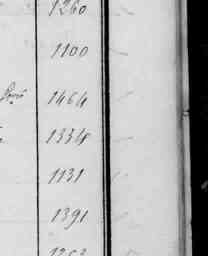 1260
1100
1464
1334
1131
1391
1253